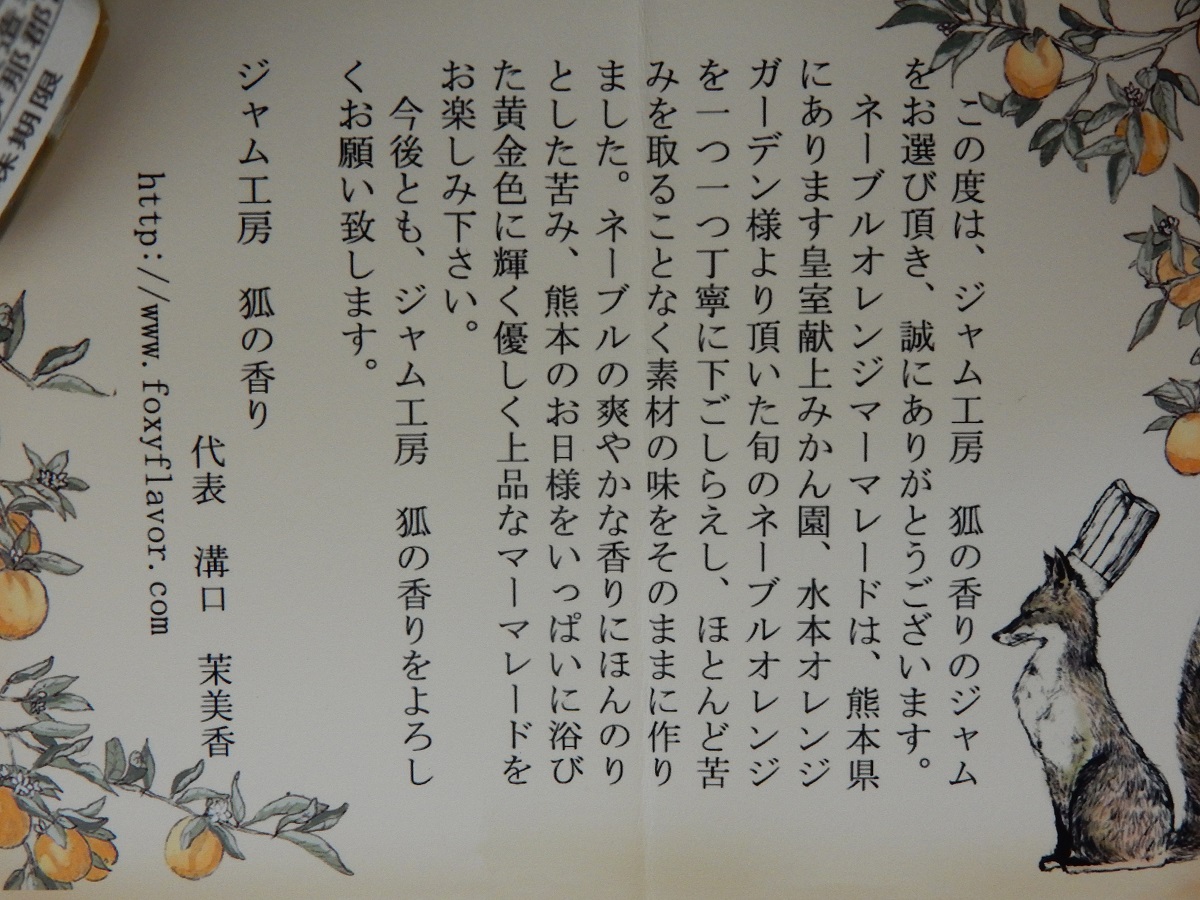 この度は、ジャム工房　狐の香りのジャム
をお選び頂き、誠にありがとうございます。
ネーブルオレンジマーマレードは、熊本県
にあります皇室献上みかん園、水本オレンジ
ガーデン様より頂いた旬のネーブルオレンジ
を一つ一つ丁寧に下ごしらえし、ほとんど苦
みを取ることなく素材の味をそのままに作り
ました。ネーブルの爽やかな香りにほんのり
とした苦み、熊本のお日様をいっぱいに浴び
た黄金色に輝く優しく上品なマーマレードを
お楽しみ下さい。
今後とも、ジャム工房　狐の香りをよろし
くお願い致します。
ジャム工房　狐の香り
代表　溝口　茉美香
http://www.foxyflavor.com
造
那郡
味期限